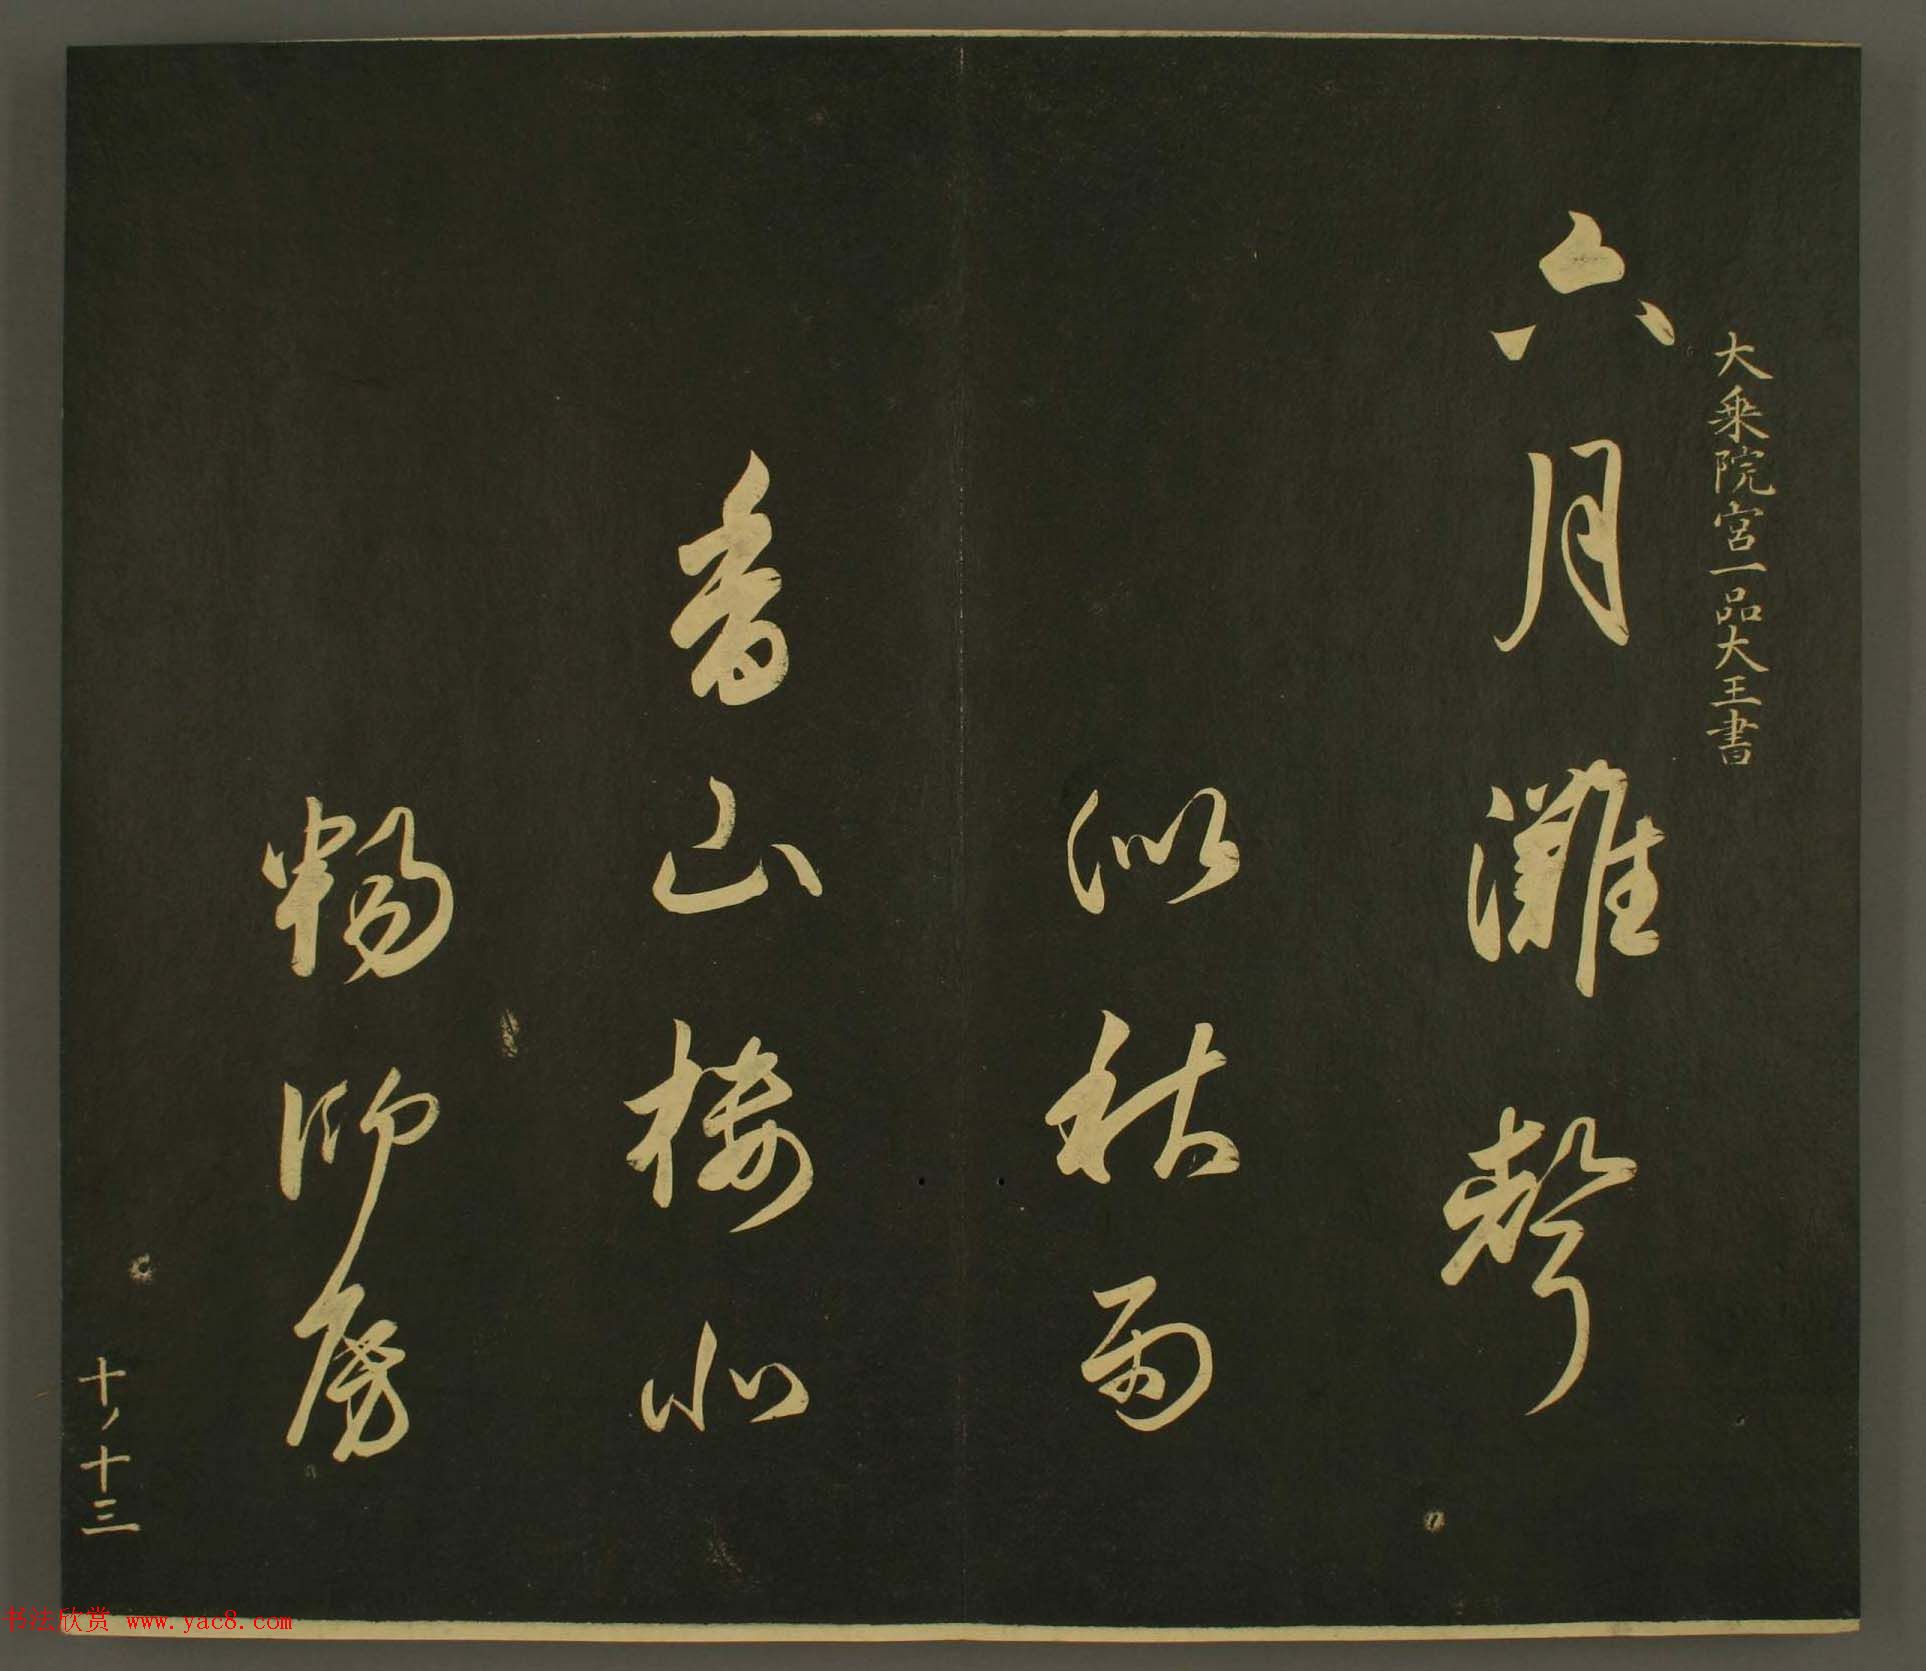 大乘院宮一品大王書
六月灘聲
似秋雨
香山樓北
暢師房
十ノ十三
书法欣赏 www.yac8.com